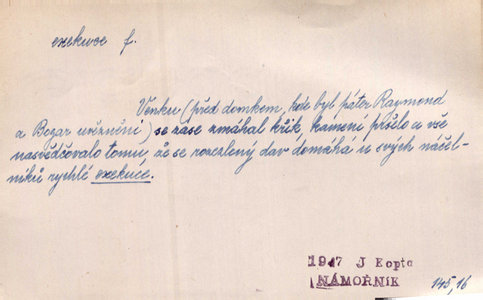 exekuce f.
Venku (před domkem, kde byl páter Raymond
a Bogar uvězněni) se zase zmáhal křik, kamení pršelo a vše
nasvědčovalo tomu, že se rozezlený dav domáhá u svých náčel-
níků rychlé exekuce.
1947 J Kopta
NÁMOŘNÍK
145,16